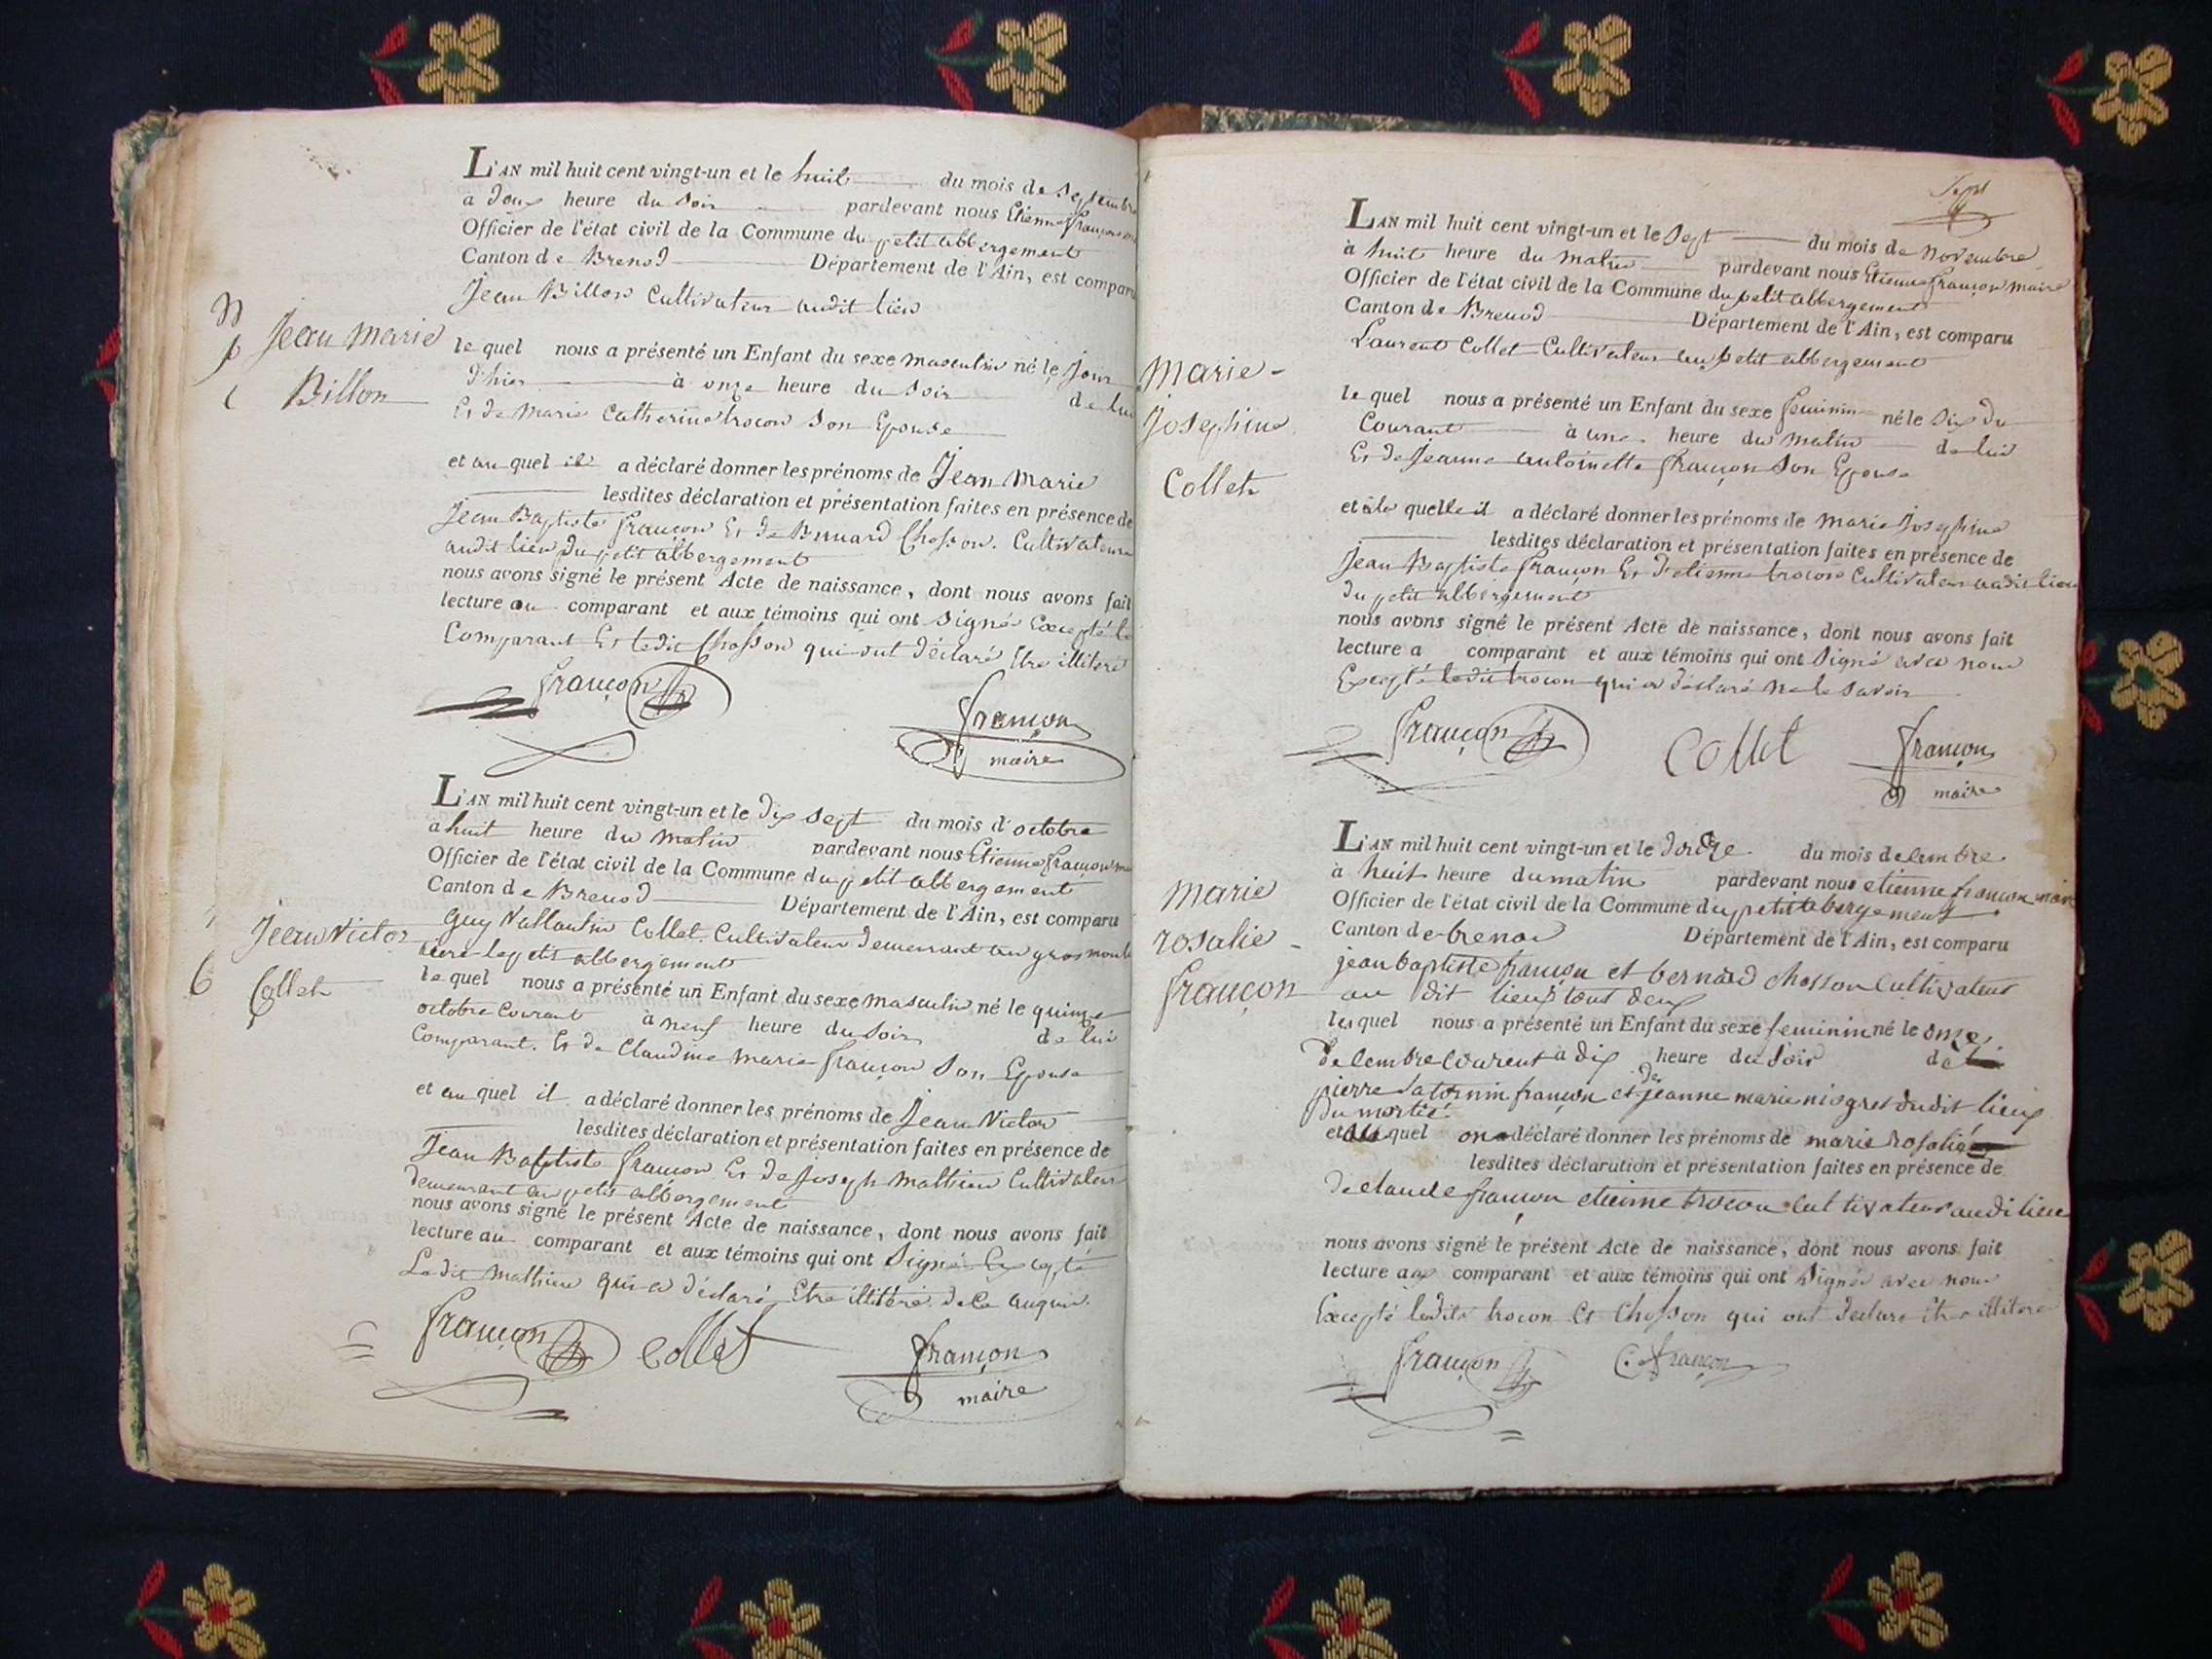 L'AN mil huit cent vingt-un et le huit du mois de septembre
a deux heure du soir pardevant nous Etienne françon
Officier de l'état civil de la Commune du petit abbergement
Canton de Brenod Département de l'Ain, est comparu
Jean Billon Cultivateur audit lieu
Jean Marie
Billon
le quel nous a présenté un Enfant du sexe masculin né le jour
d'hier à onze heure du soir de lui
Et de Marie Catherine trocon son Epouse
et au quel il a déclaré donner les prénoms de Jean Marie
lesdites déclaration et présentation faites en présence de
Jean Baptiste françon Et de Bernard Chosson. Cultivateurs
audit lieu du petit abbergement
nous avons signé le présent Acte de naissance, dont nous avons fait
lecture au comparant et aux témoins qui ont signé Excepté le
Comparant Et ledit Chosson qui ont déclaré Etre illitéré
françon
françon
maire
L'AN mil huit cent vingt-un et le dix sept du mois d'octobre
a huit heure du matin pardevant nous Etienne françon
Officier de l'état civil de la Commune du petit abbergement
Canton de Brenod Département de l'Ain, est comparu
Guy Collet Cultivateur demeurant au gros
le petit abbergement
Jean Victor
Collet
le quel nous a présenté un Enfant du sexe masculin né le quinze
octobre Courant à neuf heure du soir de lui
Comparant. Et de Claudine Marie françon son Epouse
et au quel il a déclaré donner les prénoms de Jean Victor
lesdites déclaration et présentation faites en présence de
Jean Baptiste françon Et de Joseph Mathieu Cultivateur
demeurant au petit abbergement
nous avons signé le présent Acte de naissance, dont nous avons fait
lecture au comparant et aux témoins qui ont Signé Excepté
Ledit Mathieu qui a déclaré Etre illitéré de ce
françon Collet
françon
maire
Sept
L'AN mil huit cent vingt-un et le Sept du mois de novembre
à huit heure du matin pardevant nous Etienne françon maire
Officier de l'état civil de la Commune du petit abbergement
Canton de Brenod Département de l'Ain, est comparu
Laurent Collet Cultivateur au petit abbergement
Marie
Josephine
Collet
le quel nous a présenté un Enfant du sexe feminin né le six du
Courant à une heure du matin de lui
Et de Jeanne antoinette françon son Epouse
et à la quelle il a déclaré donner les prénoms de marie josephine
lesdites déclaration et présentation faites en présence de
Jean Baptiste françon Et d'etienne trocon Cultivateur audit lieu
du petit abbergement
nous avons signé le présent Acte de naissance, dont nous avons fait
lecture a comparant et aux témoins qui ont Signé avec nous
Excepté ledit trocon qui a déclaré ne le savoir
françon Collet françon
maire
L'AN mil huit cent vingt-un et le douze du mois decembre
à huit heure du matin pardevant nous etienne françon maire
Officier de l'état civil de la Commune du petit abergement
Canton de brenod Département de l'Ain, est comparu
jean baptiste françon et bernard chosson cultivateurs
au dit lieux tous deux
marie
rosalie
françon
les quel nous a présenté un Enfant du sexe feminin né le onze
decembre courent à dix heure du soir de
pierre saturnin françon et de jeanne marie niogret dudit lieux
du mortié
et quel on déclaré donner les prénoms de marie rosalie
lesdites déclaration et présentation faites en présence de
de claude françon etienne trocon cultivateurs audi lieu
nous avons signé le présent Acte de naissance, dont nous avons fait
lecture aux comparant et aux témoins qui ont Signés avec nous
Excepté ledits trocon Et Chosson qui ont declaré être illitere
françon C. françon